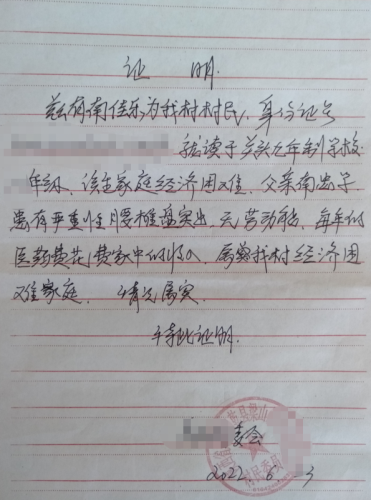 证 明
兹有南佳乐,为我村村民,身份证号
就读于关岔九年制学校
年级,该生家庭经济困难,父亲南忠子
患有严重性腰椎盘突出,无劳动能,每年的
医药费花费家中的收入,属于我村经济困
难家庭,情况属实。
特此证明.
委会
2022.6. 3